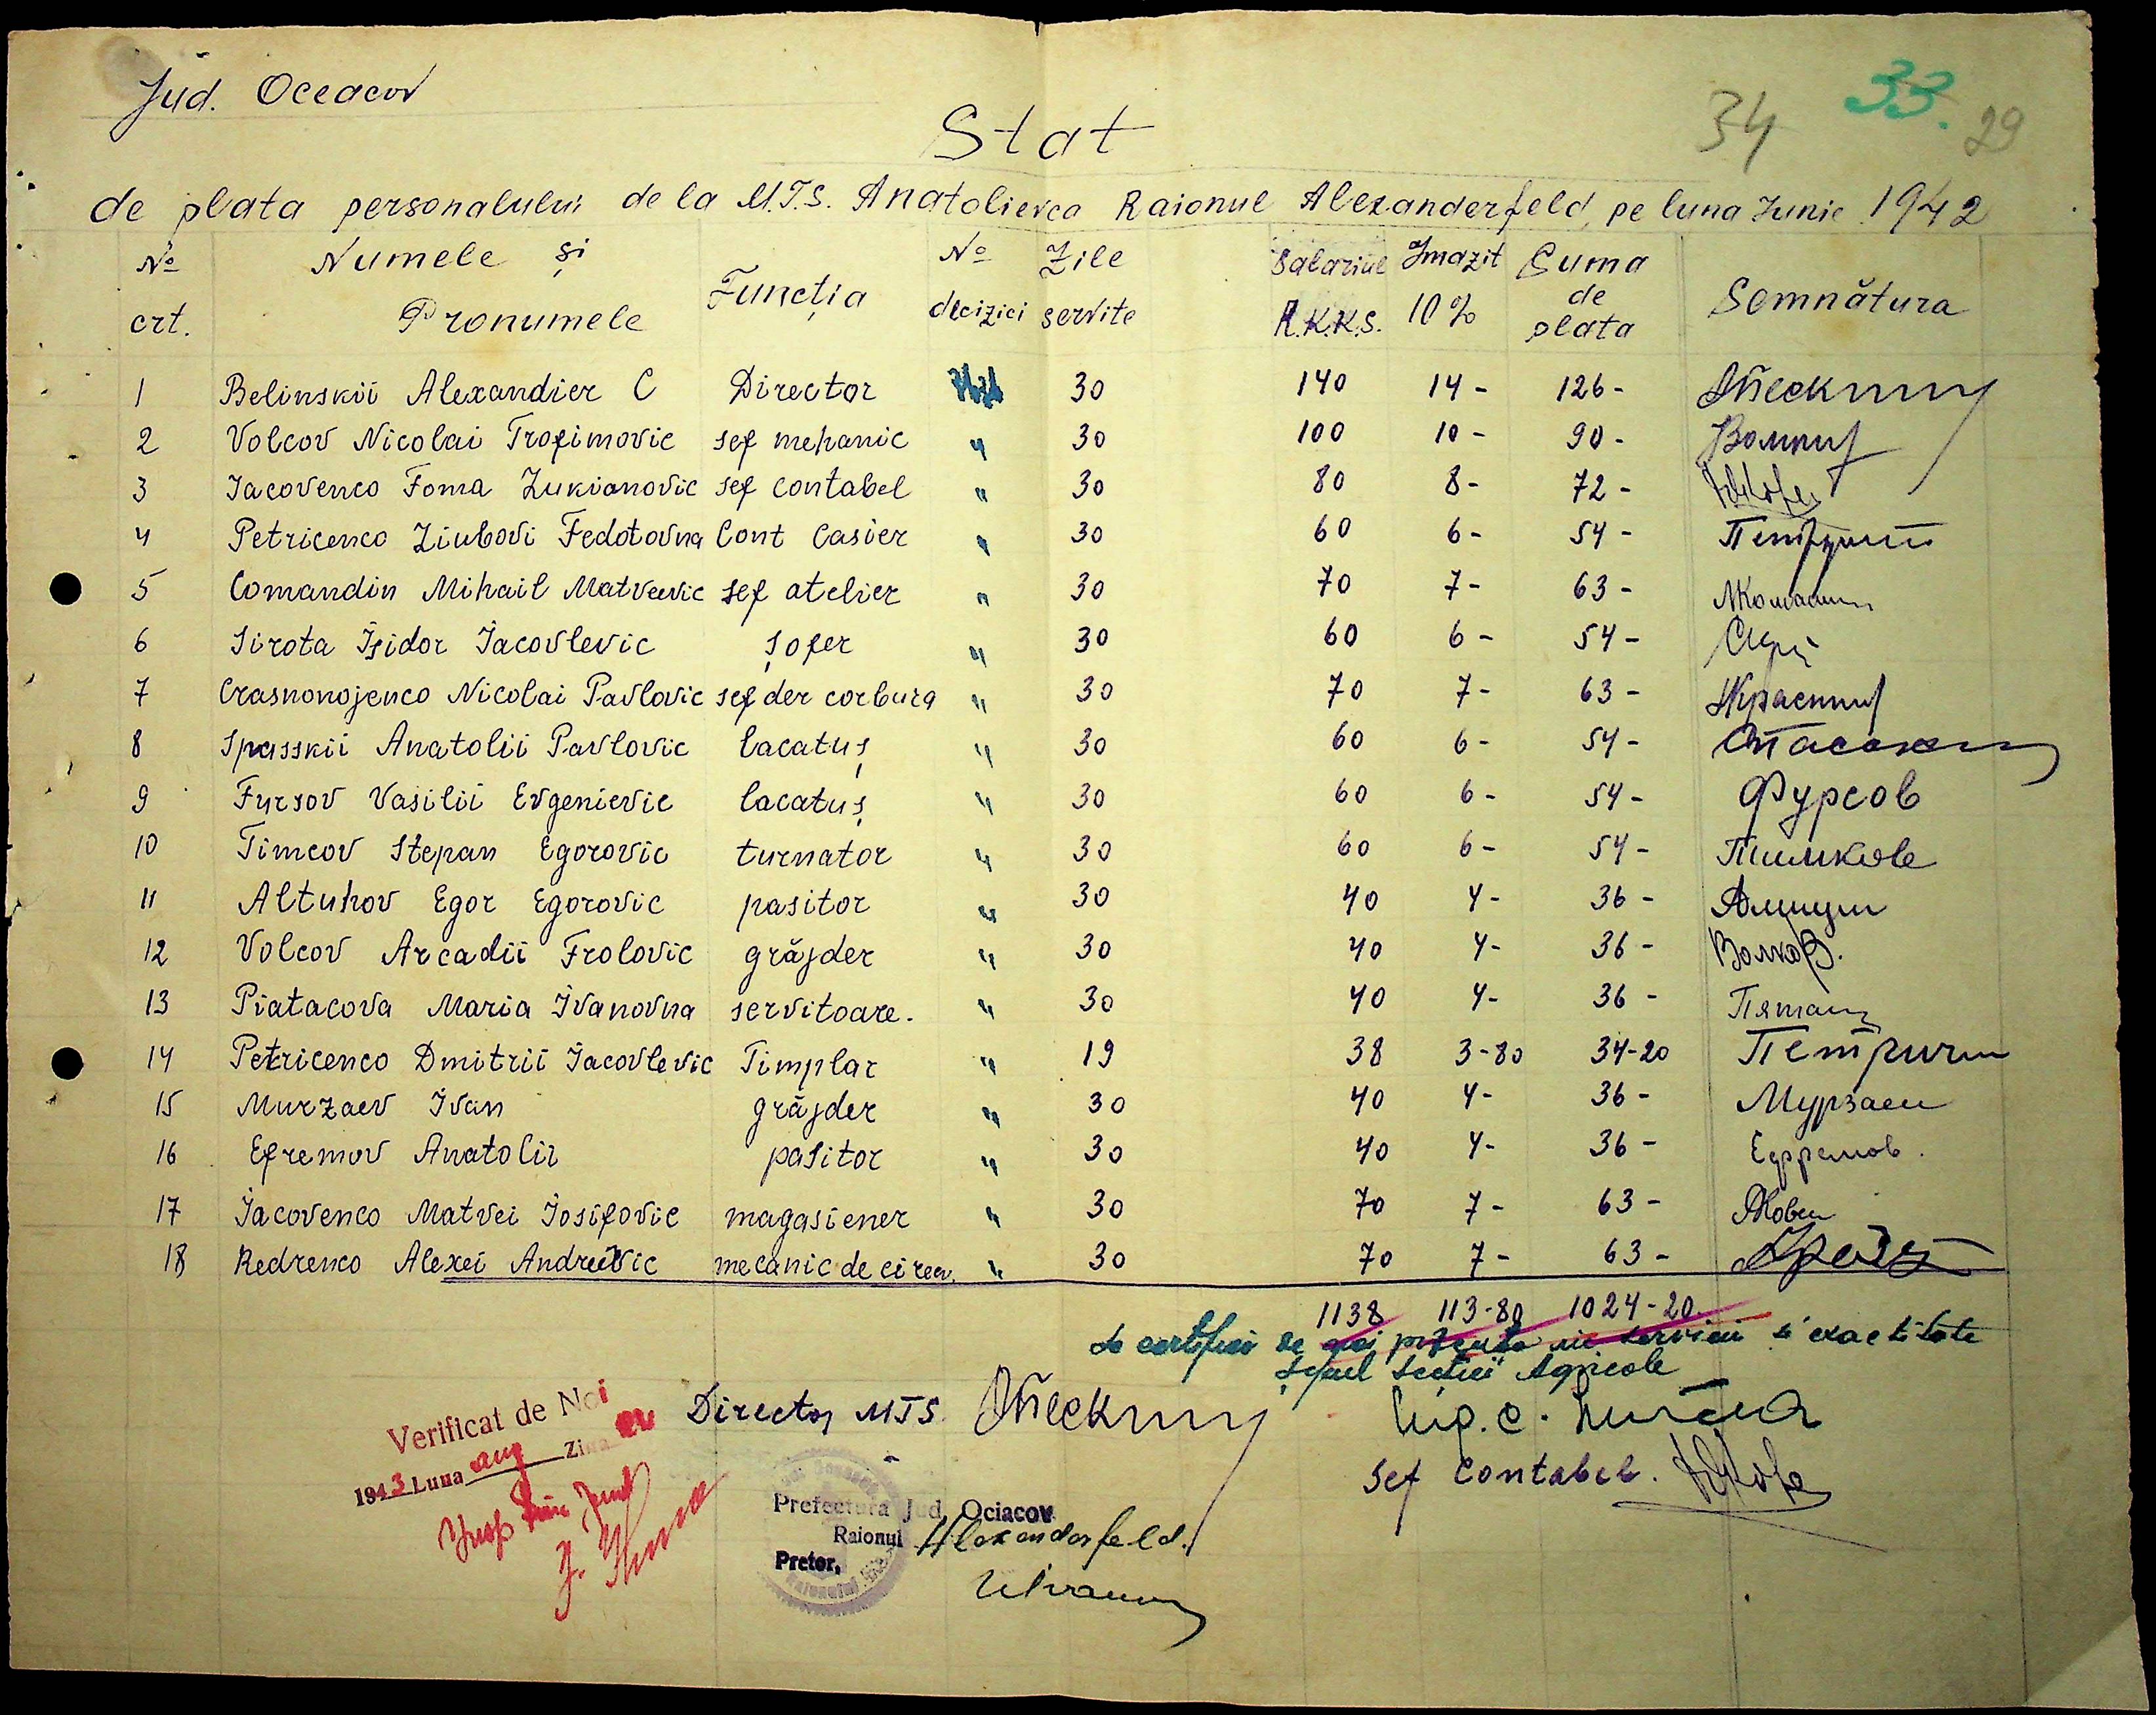 Jud. Oceacov
34 33. 29
Stat
de plata personalului de la M.T.S. Anatolievca Raionul Alexanderfeld, pe luna Iunie 1942
No crt. Numele și Pronumele Funcția No decizici Zile servite Salariul R.K.K.S. Imozit 10% Suma de plata Semnătura
1 Belinskii Alexandier C Director 30 140 14- 126-
2 Volcov Nicolai Trofimovic sef mehanic " 30 100 10- 90-
3 Iacovenco Foma Lukianovic sef contabel " 30 80 8- 72-
4 Petricenco Liubovi Fedotovna Cont Casier " 30 60 6- 54-
5 Comandin Mihail Matveevic sef atelier " 30 70 7- 63-
6 Sirota Isidor Iacovlevic șofer " 30 60 6- 54-
7 Crasnonojenco Nicolai Pavlovic sef der corbura " 30 70 7- 63-
8 Spasskii Anatolii Pavlovic lacatuș " 30 60 6- 54-
9 Fursov Vasilii Evgenievic lacatuș " 30 60 6- 54- Фурсов
10 Timcov Stepan Egorovic turnator " 30 60 6- 54-
11 Altuhov Egor Egorovic pasitor " 30 40 4- 36-
12 Volcov Arcadii Frolovic grăjder " 30 40 4- 36- Волков.
13 Piatacova Maria Ivanovna servitoare. " 30 40 4- 36-
14 Petricenco Dmitrii Iacovlevic Timplar " 19 38 3-80 34-20
15 Murzaev Ivan grăjder " 30 40 4- 36-
16 Efremov Anatolii pasitor " 30 40 4- 36- Ефремов.
17 Iacovenco Matvei Iosifovic magasiener " 30 70 7- 63-
18 Redrenco Alexei Andreivic mecanic de " 30 70 7- 63-
1138 113-80 1024-20
exactitate
Șeful Secției Agricole
Director MTS.
Ing. C.
Sef Contabel.
Verificat de Noi
1943 Luna aug Ziua
Prefectura Jud. Ociacov
Raionul Alexanderfeld.
Pretor,